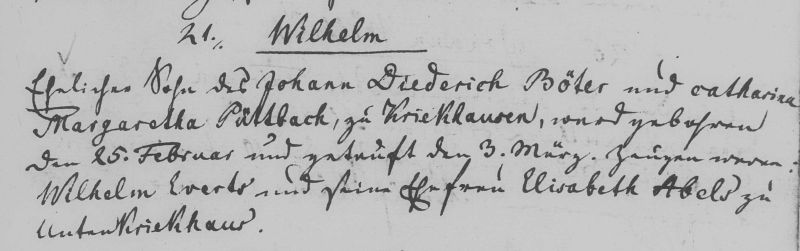 21./. Wilhelm
Ehelicher Sohn des Johann Diederich Böter und Catharina
Margaretha Püttbach, zu Kriekhausen, ward gebohren
den 25. Februar und getauft den 3. März. Zeugen waren:
Wilhelm Everts und seine Ehefrau Elisabeth Abels zu
Untenkriekhaus.